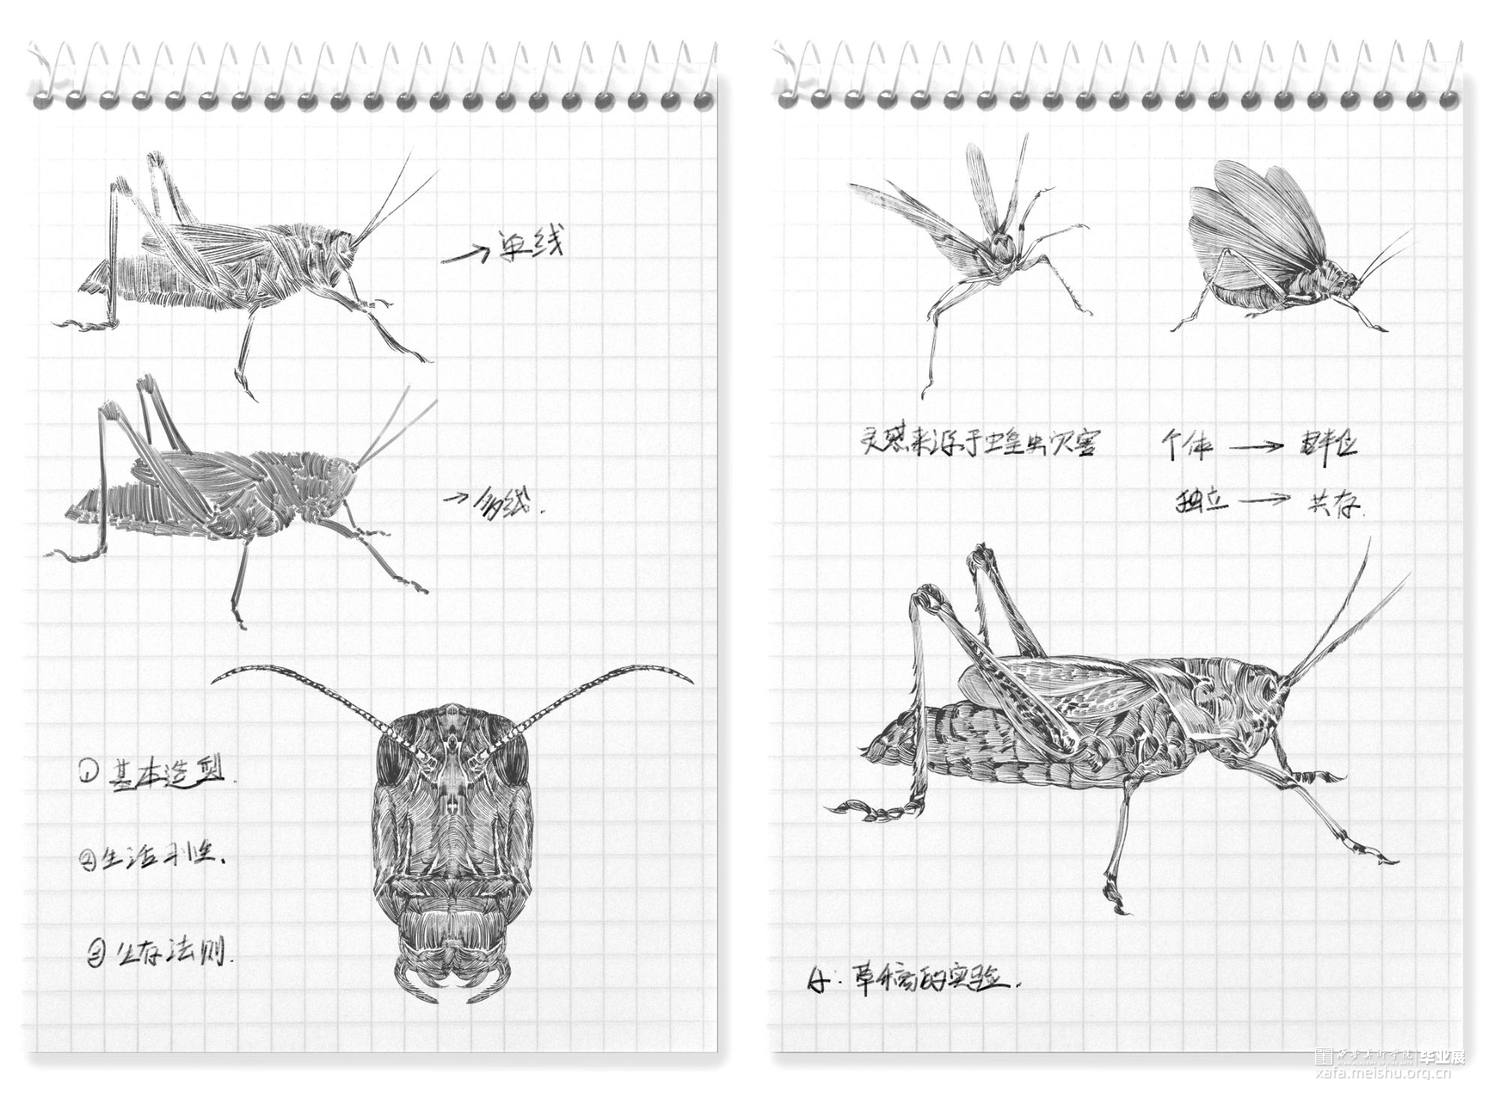 →单线
→多线.
①基本造型.
②生活习性.
③生存法则.
灵感来源于蝗虫灾害
个体→群体
独立→共存.
小: 草稿的实验.
西安美术学院 毕业展
xafa.meishu.org.cn